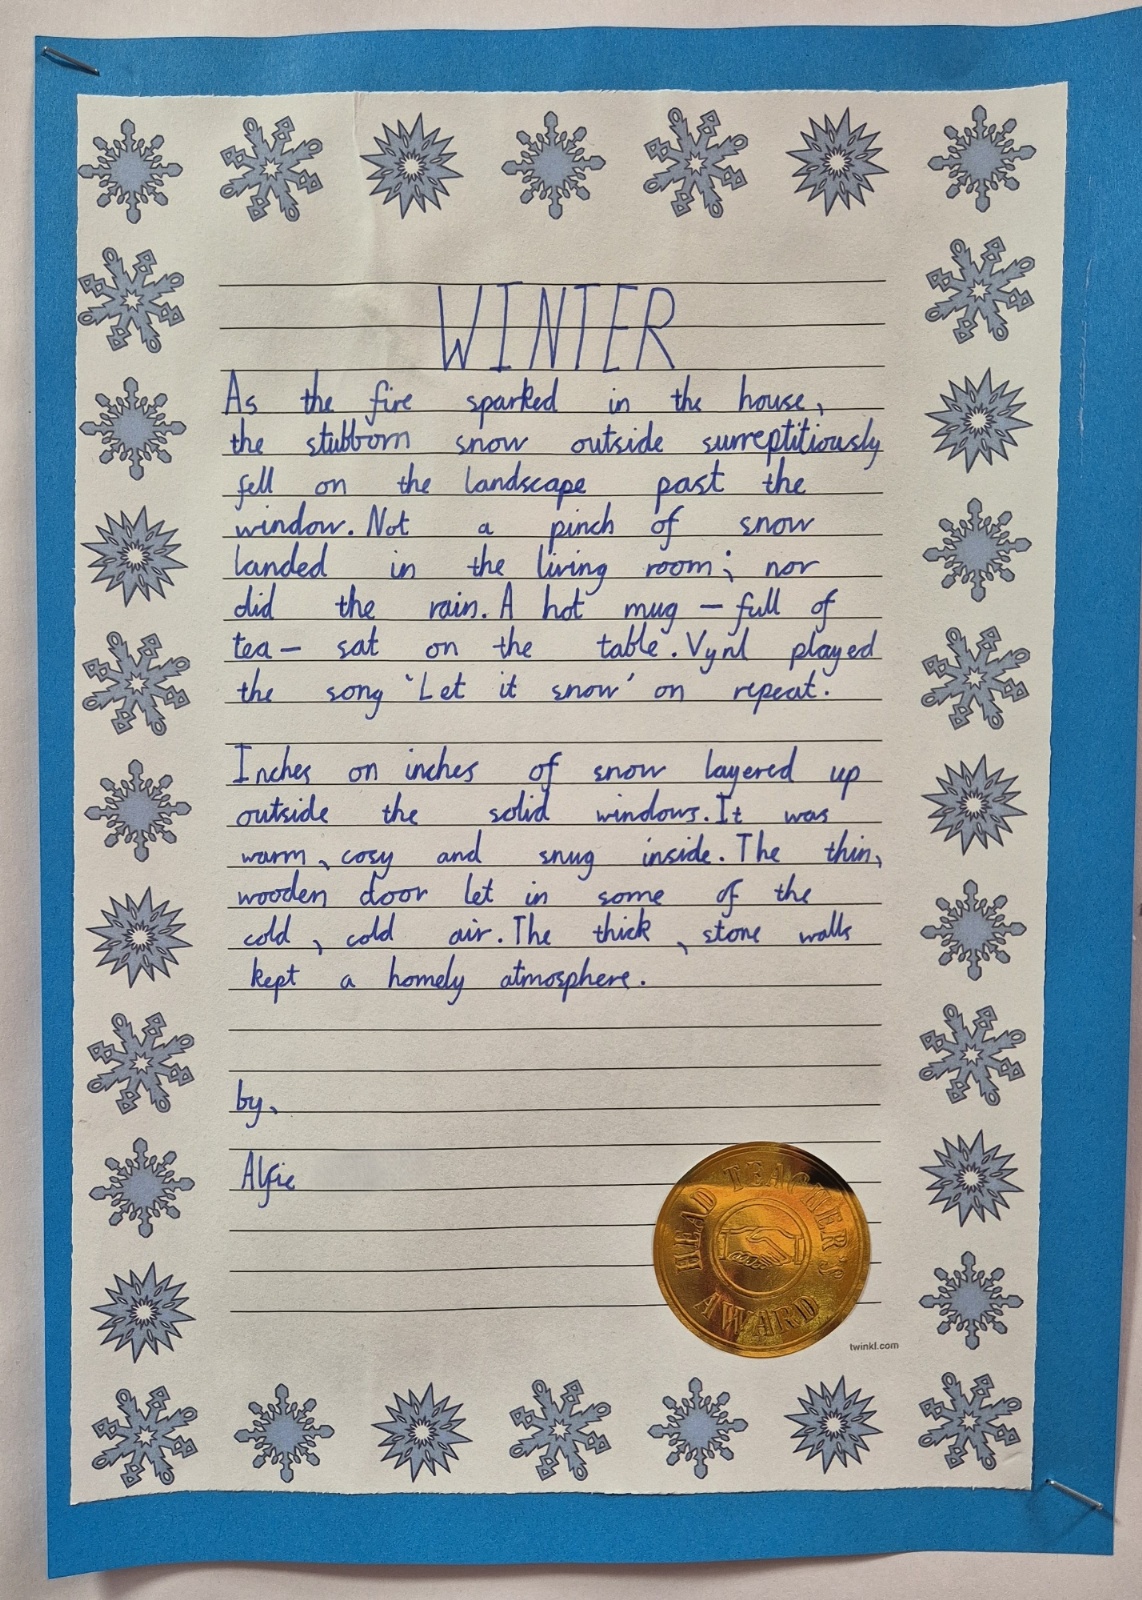 WINTER
As the fire sparked in the house,
the stubborn snow outside surreptitiously
fell on the landscape past the
window. Not a pinch of snow
landed in the living room; nor
did the rain. A hot mug – full of
tea – sat on the table. Vynl played
the song 'Let it snow' on repeat.
Inches on inches of snow layered up
outside the solid windows. It was
warm, cosy and snug inside. The thin,
wooden door let in some of the
cold, cold air. The thick, stone walls
kept a homely atmosphere.
by,
Alfie
HEAD TEACHER'S
AWARD
twinkl.com